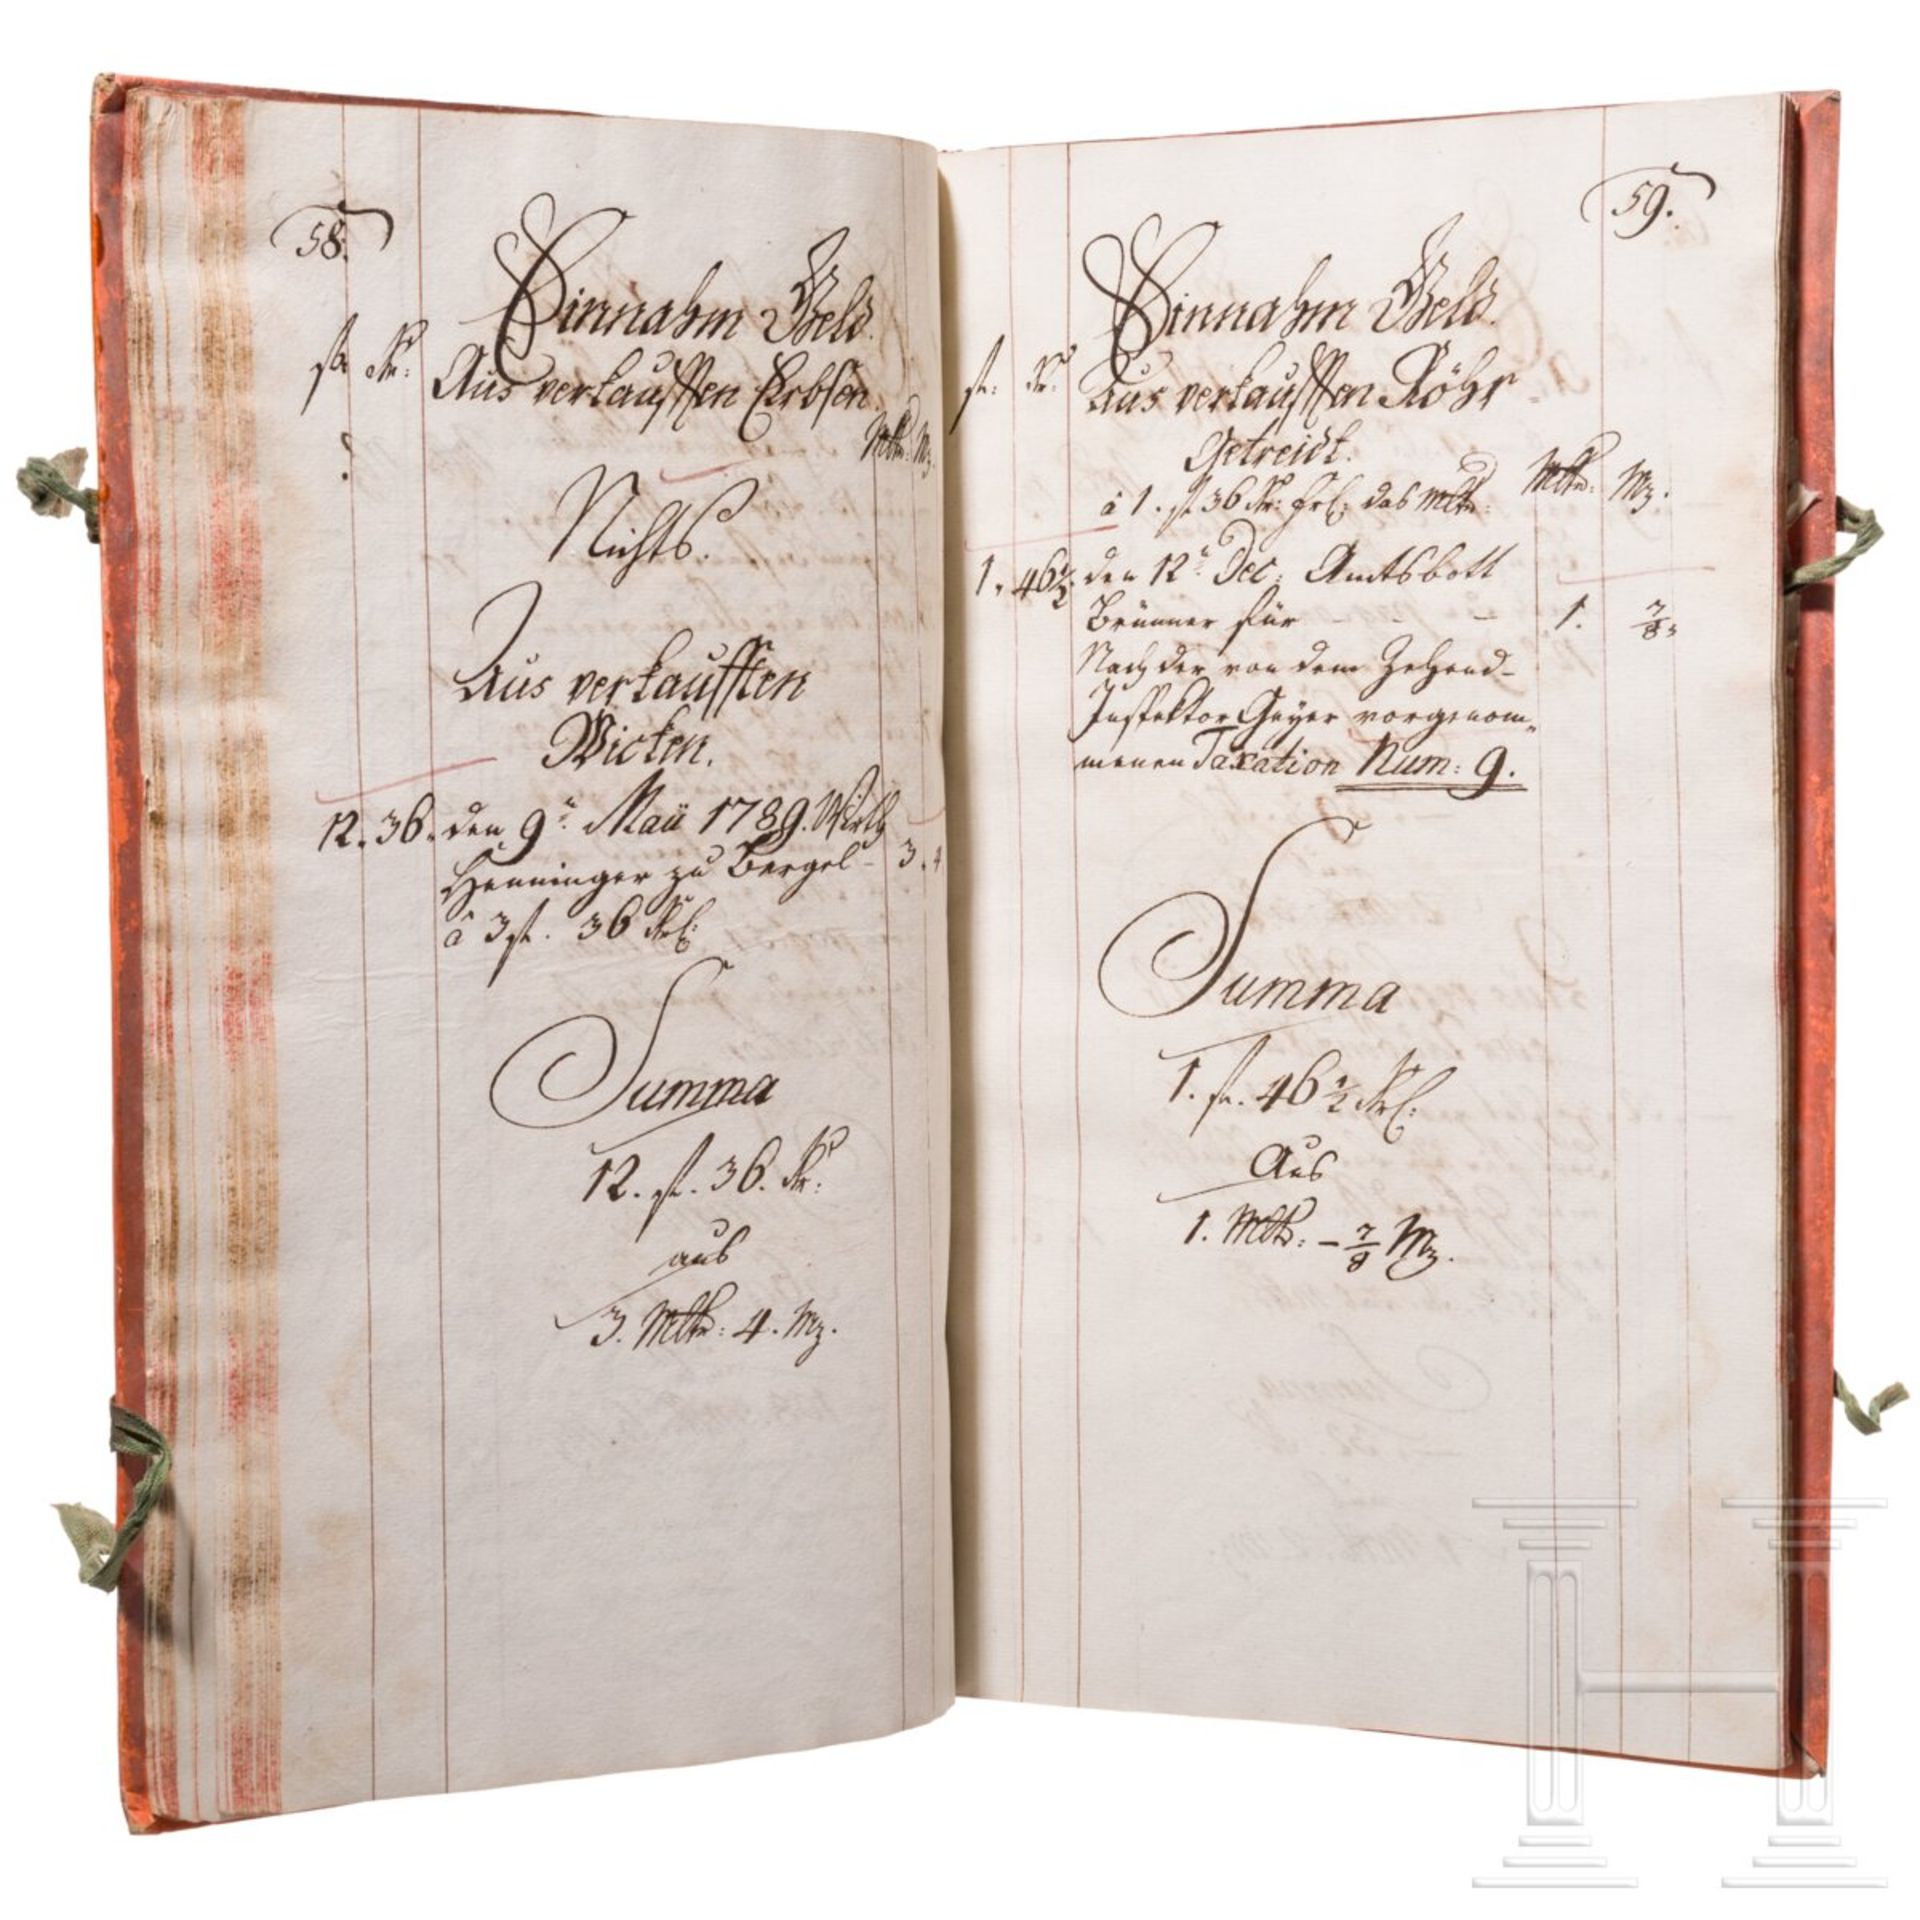 58.
Einnahm Geld.
fl. Kr. Aus verkaufften Erbsen.
Mltr. Mz.
Nichts.
Aus verkaufften
Wicken.
12. 36. den 9n. Maii 1789. Wirth
Henninger zu Bergel - 3. 4
â 3 fl. 36 Kr.
Summa
12. fl. 36. Kr.
aus
3. Mltr: 4. Mz.
59.
Einnahm Geld.
fl: Kr: Aus verkaufften Röhr-
Getreidt.
â 1. fl. 36 Kr: das Mltr: Mltr: Mz.
1. 46½. den 12n. Dec: Amtsbott
Brünner für - - - 1. 7/8.
Nach der von dem Zehend-
Inspektor Geyer vorgenom-
menen Taxation Num: 9.
Summa
1. fl. 46½ Kr.
Aus
1. Mltr: - 7/8 Mz.